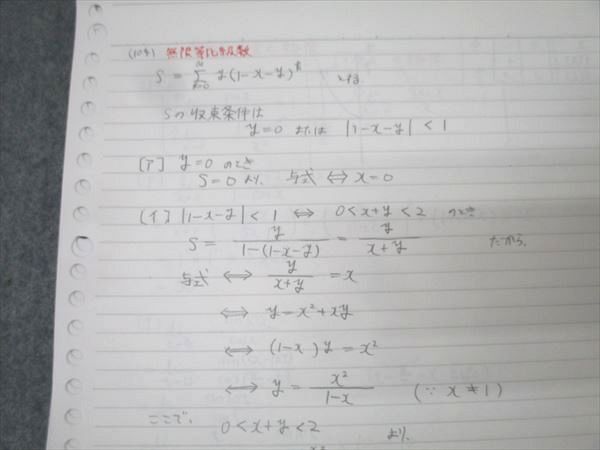 (10キ) 無限等比級数
S = Σ_{k=0}^{∞} y(1-x-y)^k とする
Sの収束条件は
y=0 または |1-x-y| < 1
[ア] y=0 のとき
S=0 より、 与式 ⇔ x=0
[イ] |1-x-y| < 1 ⇔ 0<x+y<2 のとき
S = y/(1-(1-x-y)) = y/(x+y) だから、
与式 ⇔ y/(x+y) = x
⇔ y=x²+xy
⇔ (1-x)y=x²
⇔ y = x²/(1-x) (∵ x≠1)
ここで、
0<x+y<2 より、